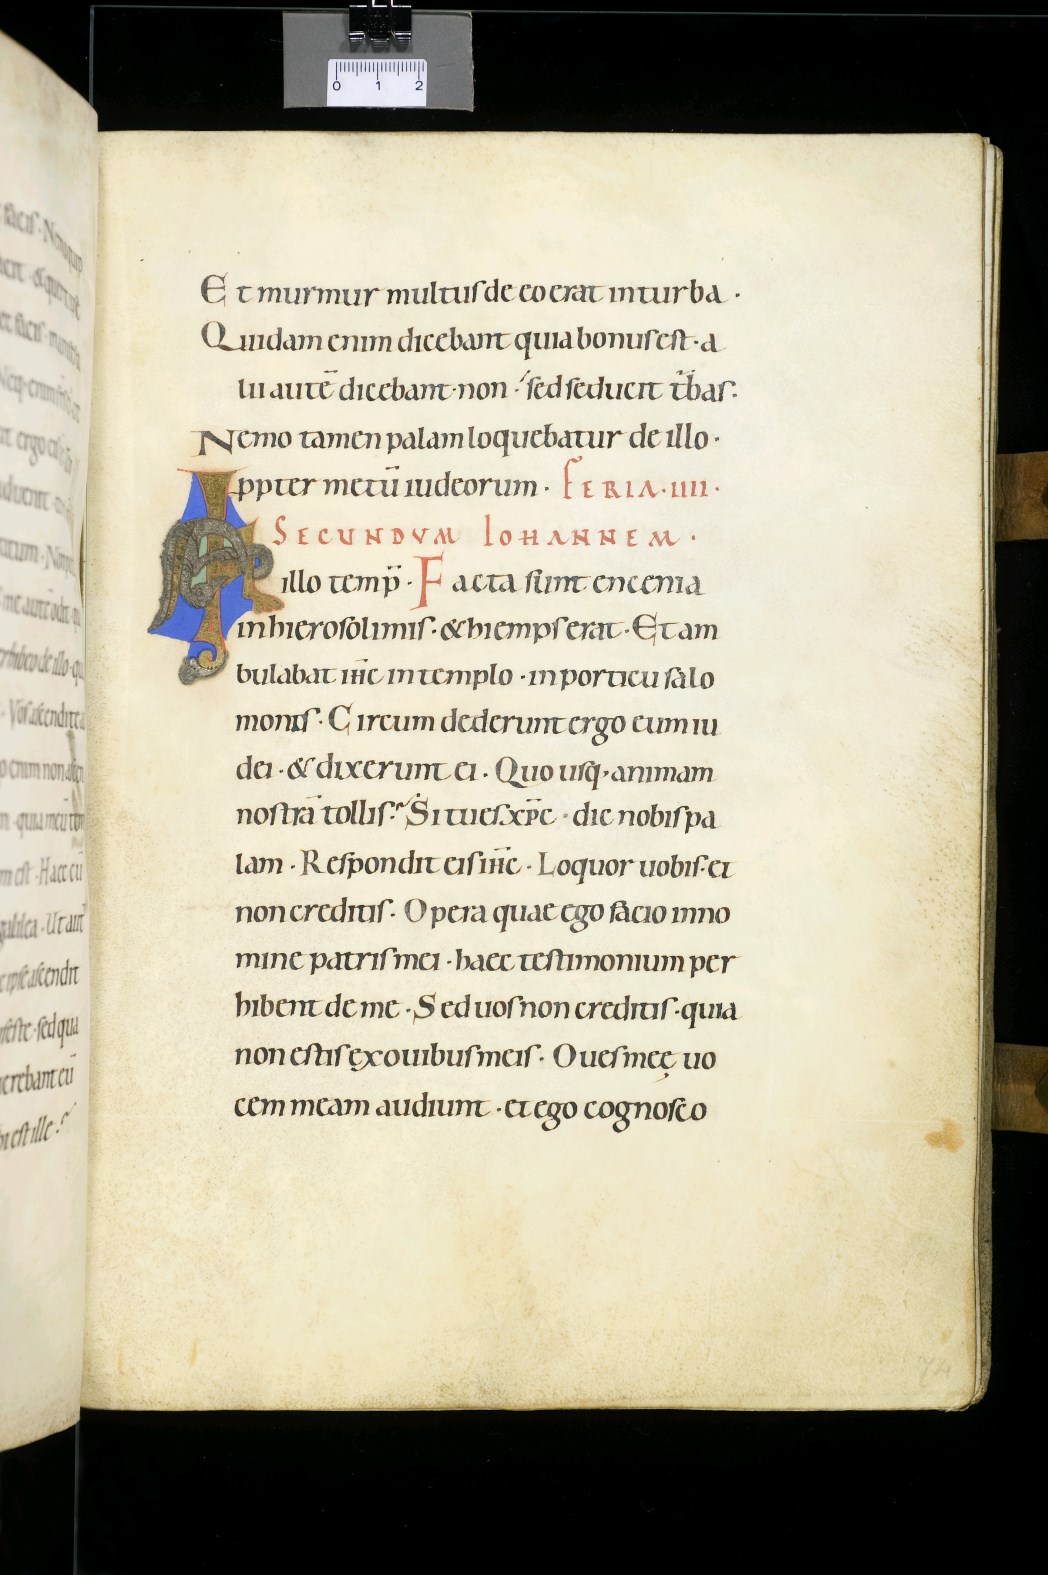 0 1 2
Et murmur multuſ de eo erat in turba ·
Quidam enim dicebant quia bonuſ eſt · a
lii autē dicebant · non · ſed ſeducit t̄bas ·
Nemo tamen palam loquebatur de illo ·
ppter metū iudeorum · FERIA · IIII ·
SECUNDVM IOHANNEM ·
IN illo temp̄ · Facta ſunt encenia
in hieroſolimiſ · & hiempſ erat · Et am
bulabat ih̄c in templo · in porticu ſalo
moniſ · Circum dederunt ergo eum iu
dei · & dixerunt ei · Quo uſq; animam
noſtrā tolliſ? Si tu eſ xp̄c · dic nobiſ pa
lam · Reſpondit eiſ ih̄c · Loquor uobiſ · et
non creditiſ · Opera quae ego facio in no
mine patriſ mei · haec teſtimonium per
hibent de me · Sed uoſ non creditiſ · quia
non eſtiſ ex ouibuſ meiſ · Oueſ meę uo
cem meam audiunt · et ego cognoſco
74